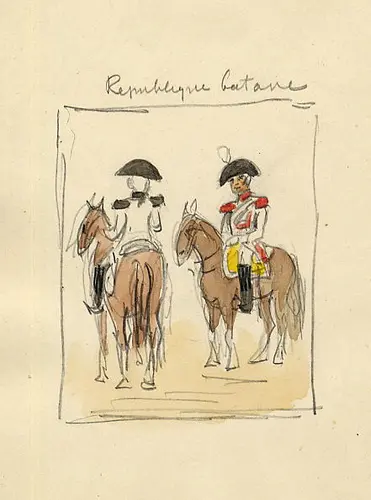 Republique batave